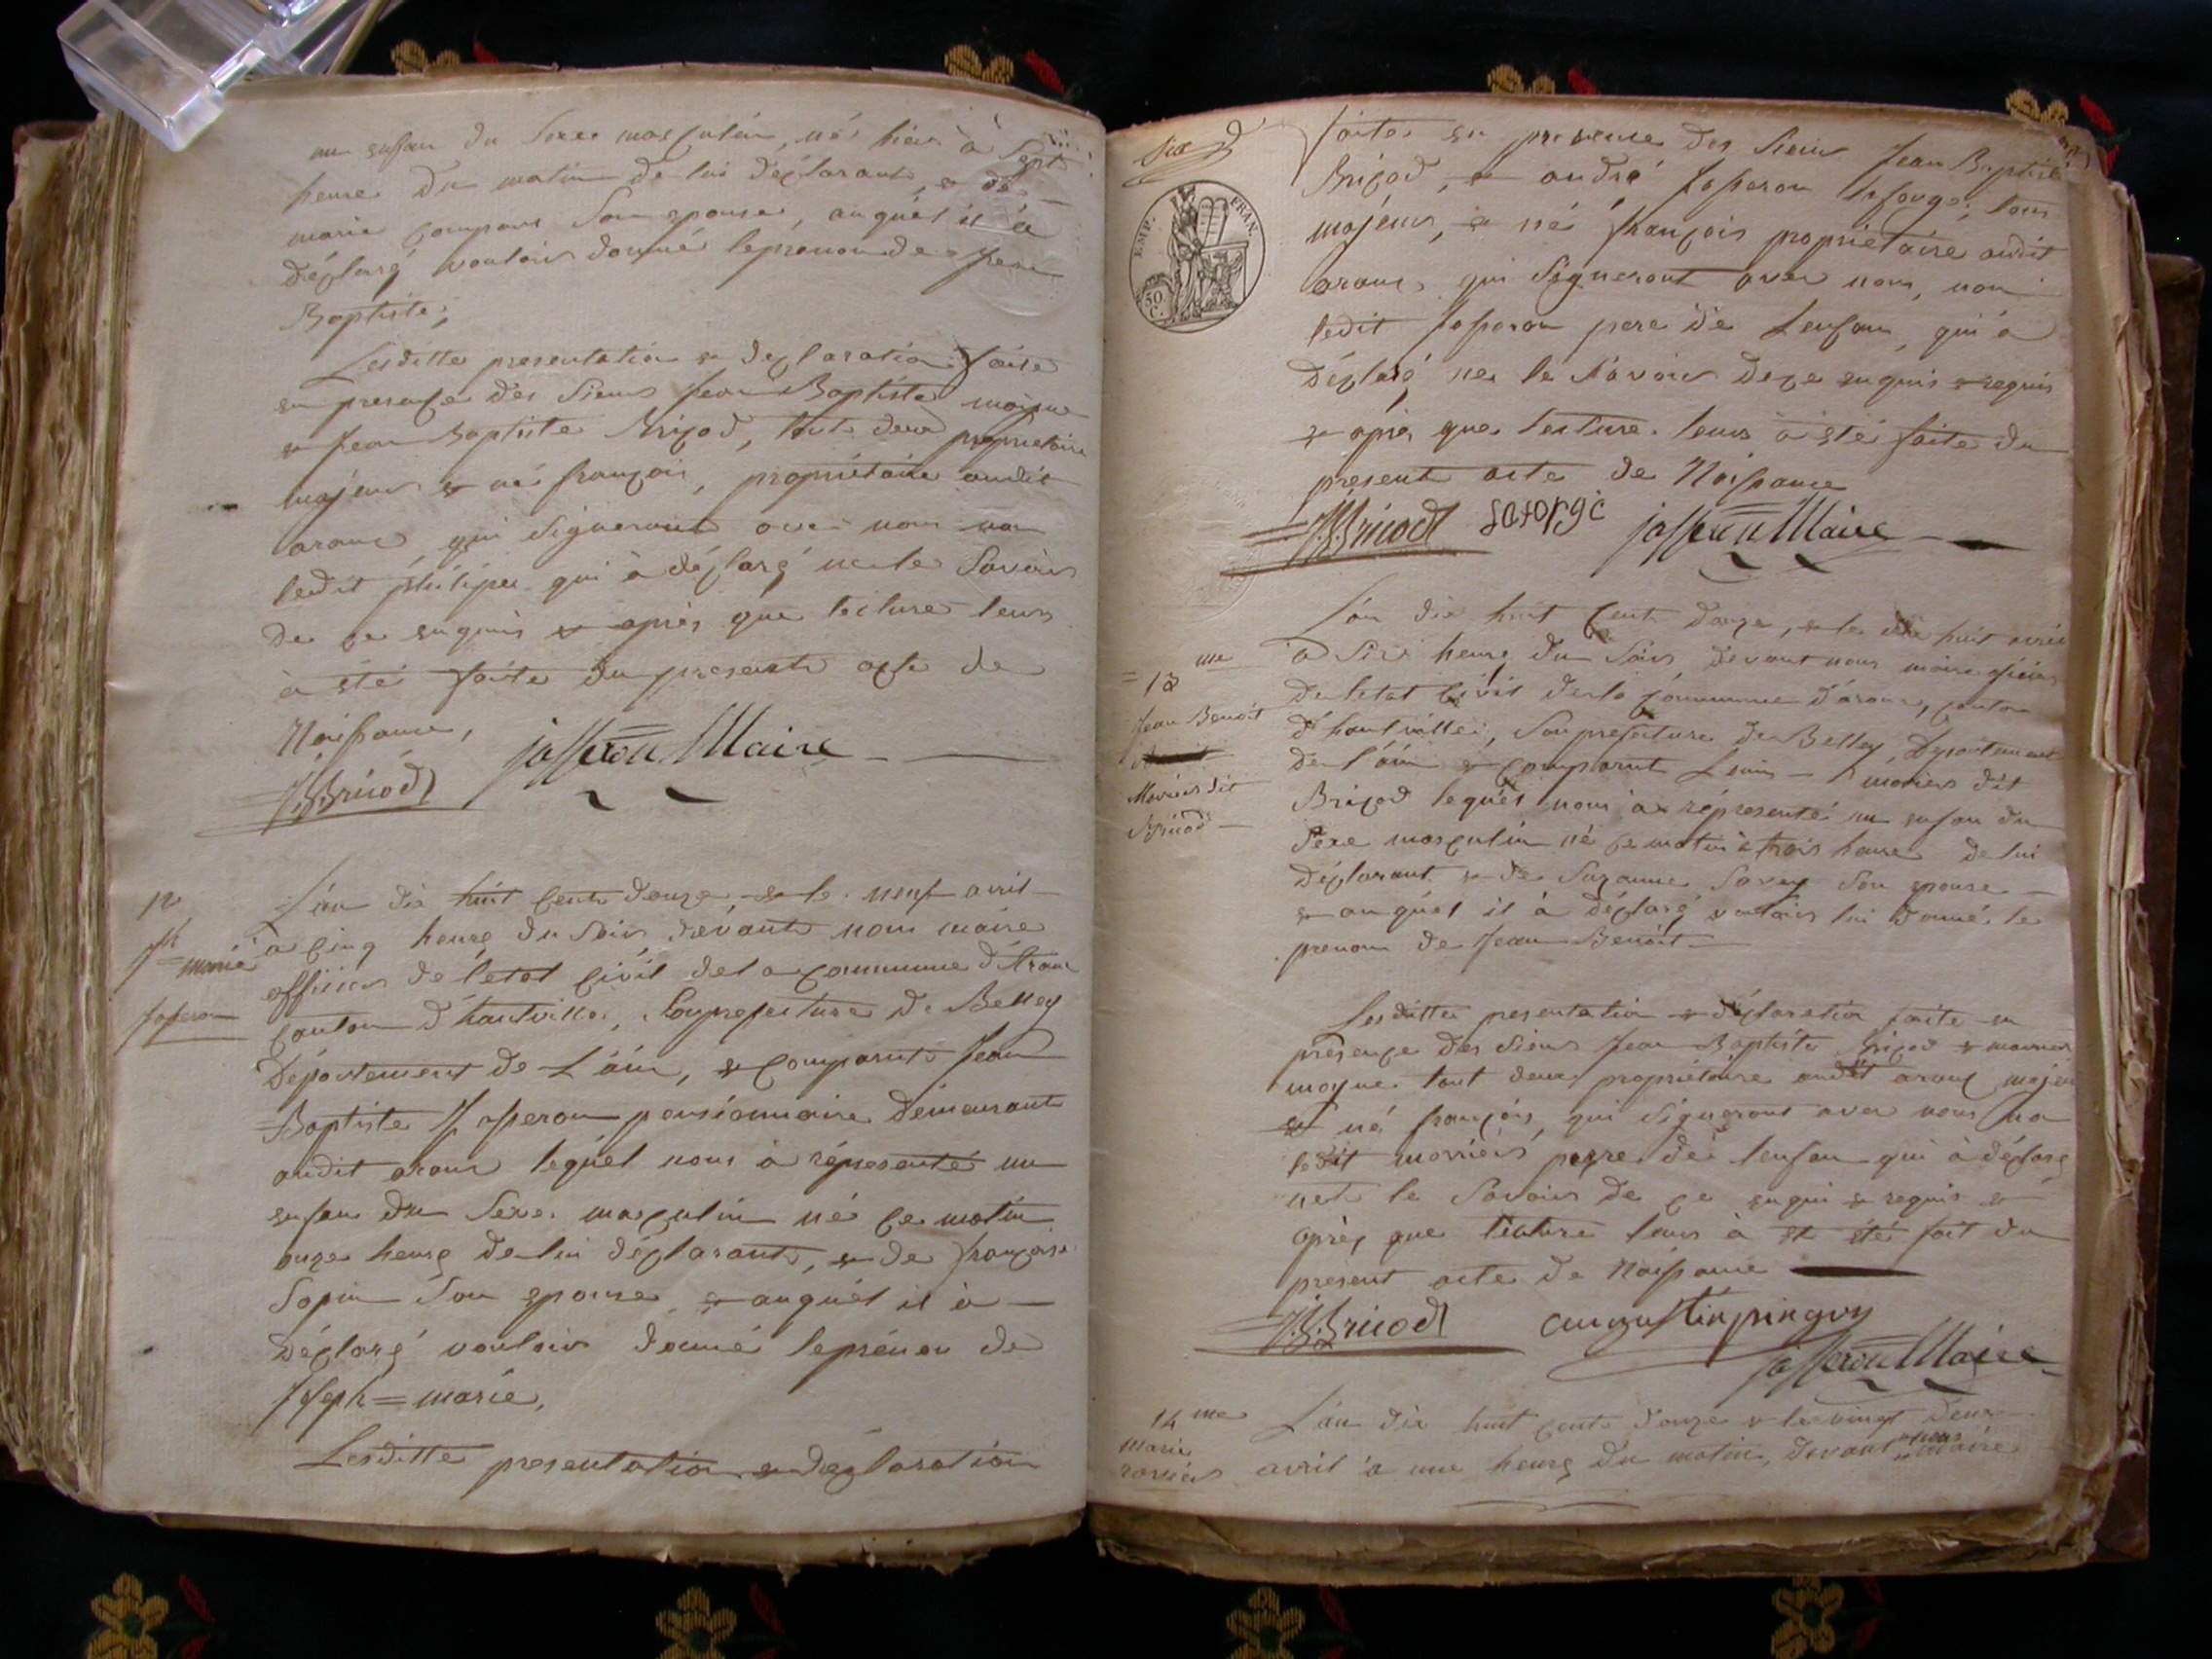 un enfan du Sexe masculin, né hier à Sept
heure du matin de lui déclarant, & de
marie Son epouse, auquel il à
déclaré vouloir donné le prenom de Jean
Baptiste;
Lesditte presentation & declaration faite
en presence des Sieurs Jean Baptiste moyne
& Jean Baptiste Bricod, tout deux proprietaire
majeur & né françois, propriétaire audit
aranc, qui Signeront avec nous non
ledit philipe qui à déclaré ne le Savoir
de ce enquis & après que lecture leur
à été faite du presente acte de
Naissance,
JB.Bricod Josseron Maire
12
Jph
=marie
Josseron
L'an dix huit cent douze & le neuf avril
a cinq heure du Soir devant nous maire
officier de l'etat civil de la commune d'Aranc
canton d'hauteville, Souprefecture de Belley
Département de L'ain, & comparut Jean
Baptiste Josseron pensionnaire demeurant
audit aranc lequel nous à répresenté un
enfan du Sexe masculin né ce matin
onze heure de lui déclarant, & de françoise
Sapin Son epouse, & auquel il à
Déclaré vouloir donné le prénom de
Joseph=marie,
Lesditte presentation & declaration
EMP. FRAN.
50 C.
faite en presence des Sieur Jean Baptiste
Bricod, & andré Josseron laforge, tous
majeur, & né françois propriétaire audit
aranc, qui Signeront avec nous, non
ledit Josseron pere de L'enfan, qui à
Déclaré ne le Savoir de ce enquis & requis
& après que lecture leur à été faite du
present acte de Naissance
JB.Bricod laforge Josseron Maire
=13 me
Jean Benoit
Moriéir dit
Bricod
L'an dix huit cent douze, & le dix huit avril
a Six heure du Soir devant nous maire oficier
de letat civil de la commune d'aranc, canton
d'hauteville, Souprefecture de Belley, Departement
de l'ain & comparut Louis moriéir dit
Bricod lequel nous à répresenté un enfan du
Sexe masculin né ce matin à trois heure de lui
déclarant & de Suzanne Savey Son epouse
& auquel il à déclaré vouloir lui donné le
prenom de Jean Benoit
Lesditte presentation & déclaration faite en
presence des Sieurs Jean Baptiste Bricod &
moyne tout deux propriétaire audit aranc majeur
& né françois, qui Signeront avec nous non
ledit morriéir peyre de lenfan qui à déclaré
ne le Savoir de ce enqui & requis &
après que lecture leur à été fait du
présent acte de Naissance
JB.Bricod augustin pinguy
Josseron Maire
14 me
Marie
L'an dix huit cent douze & le vingt deux
avril à une heure du matin, devant nous maire